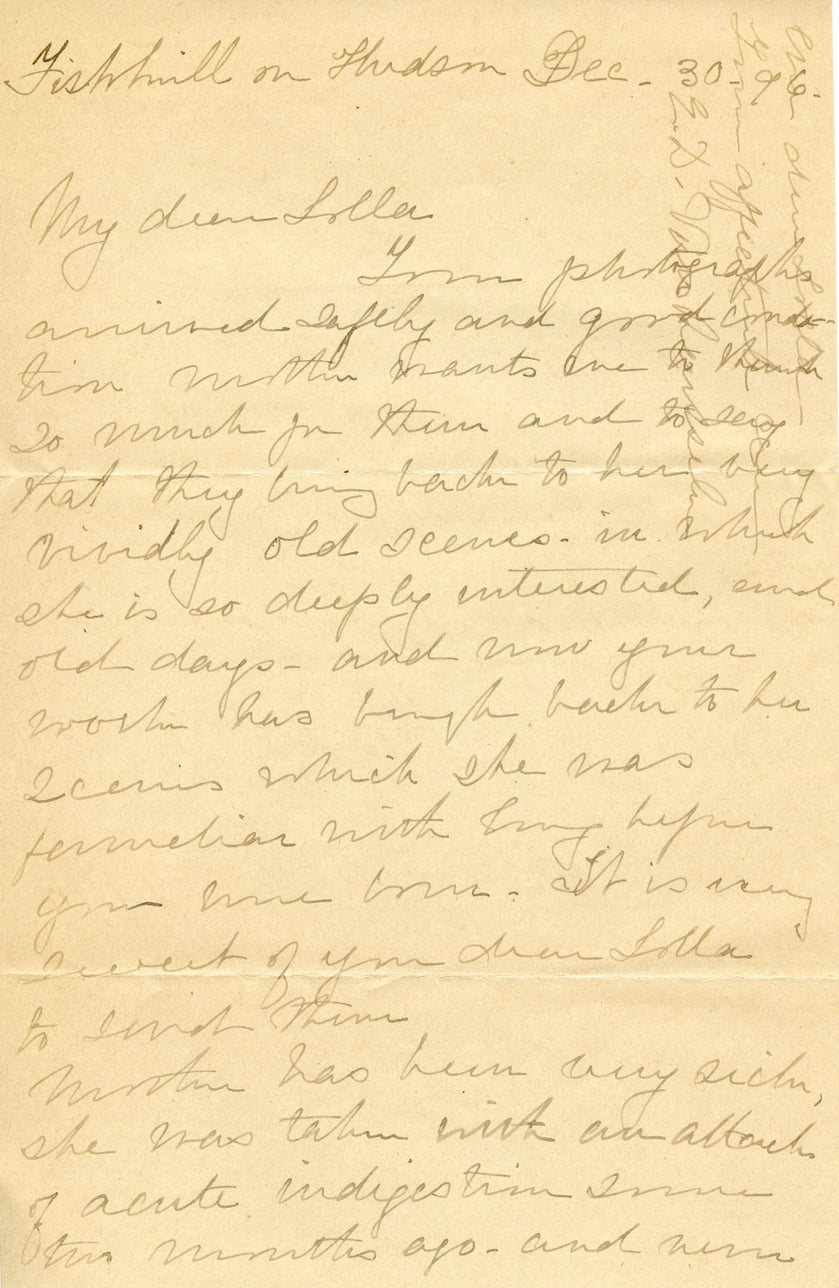 Fishkill on Hudson Dec - 30 - 96 -
My dear Lolla
Your photographs
arrived safely and good condi-
tion mother wants me to thank
so much for them and to say
that they bring back to her very
vividly old scenes - in which
she is so deeply interested, and
old days - and now your
work has brought back to her
scenes which she was
familiar with long before
you were born - It is very
sweet of you dear Lolla
to send them
Mother has been very sick,
she was taken with an attack
of acute indigestion some
two months ago - and
dear Lolla
Your affectionate
E. D. Van